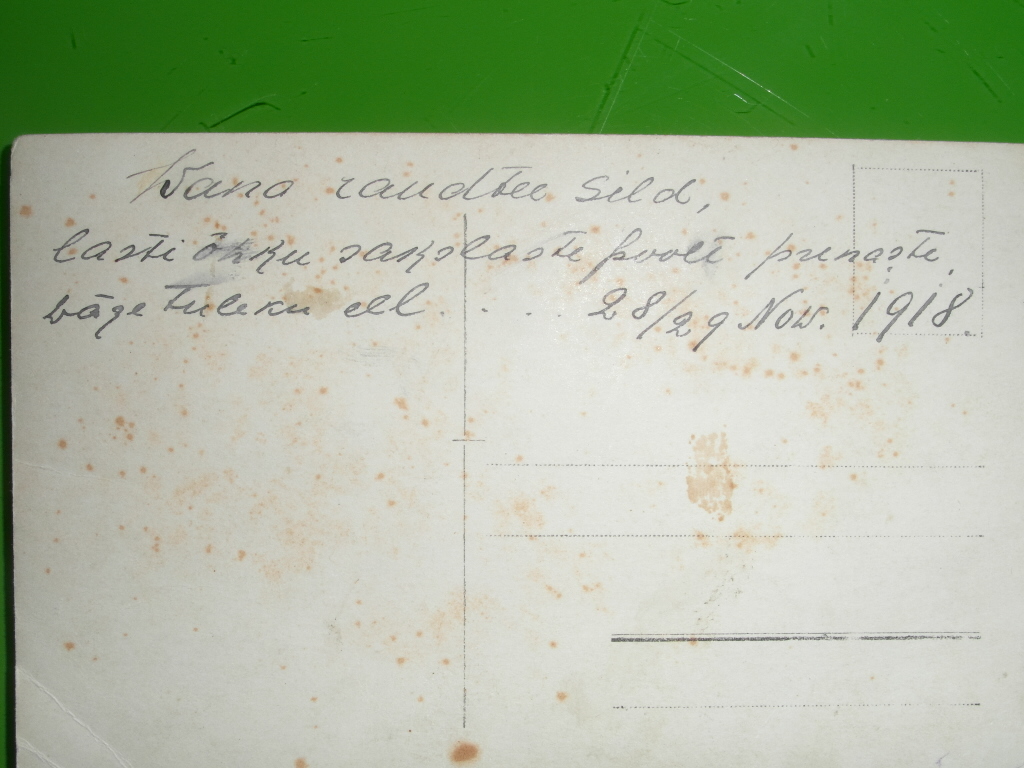 Wana raudtee sild,
lasti õhku sakslaste poolt punaste
väge tuleku eel . . . . 28/29 Now. 1918.